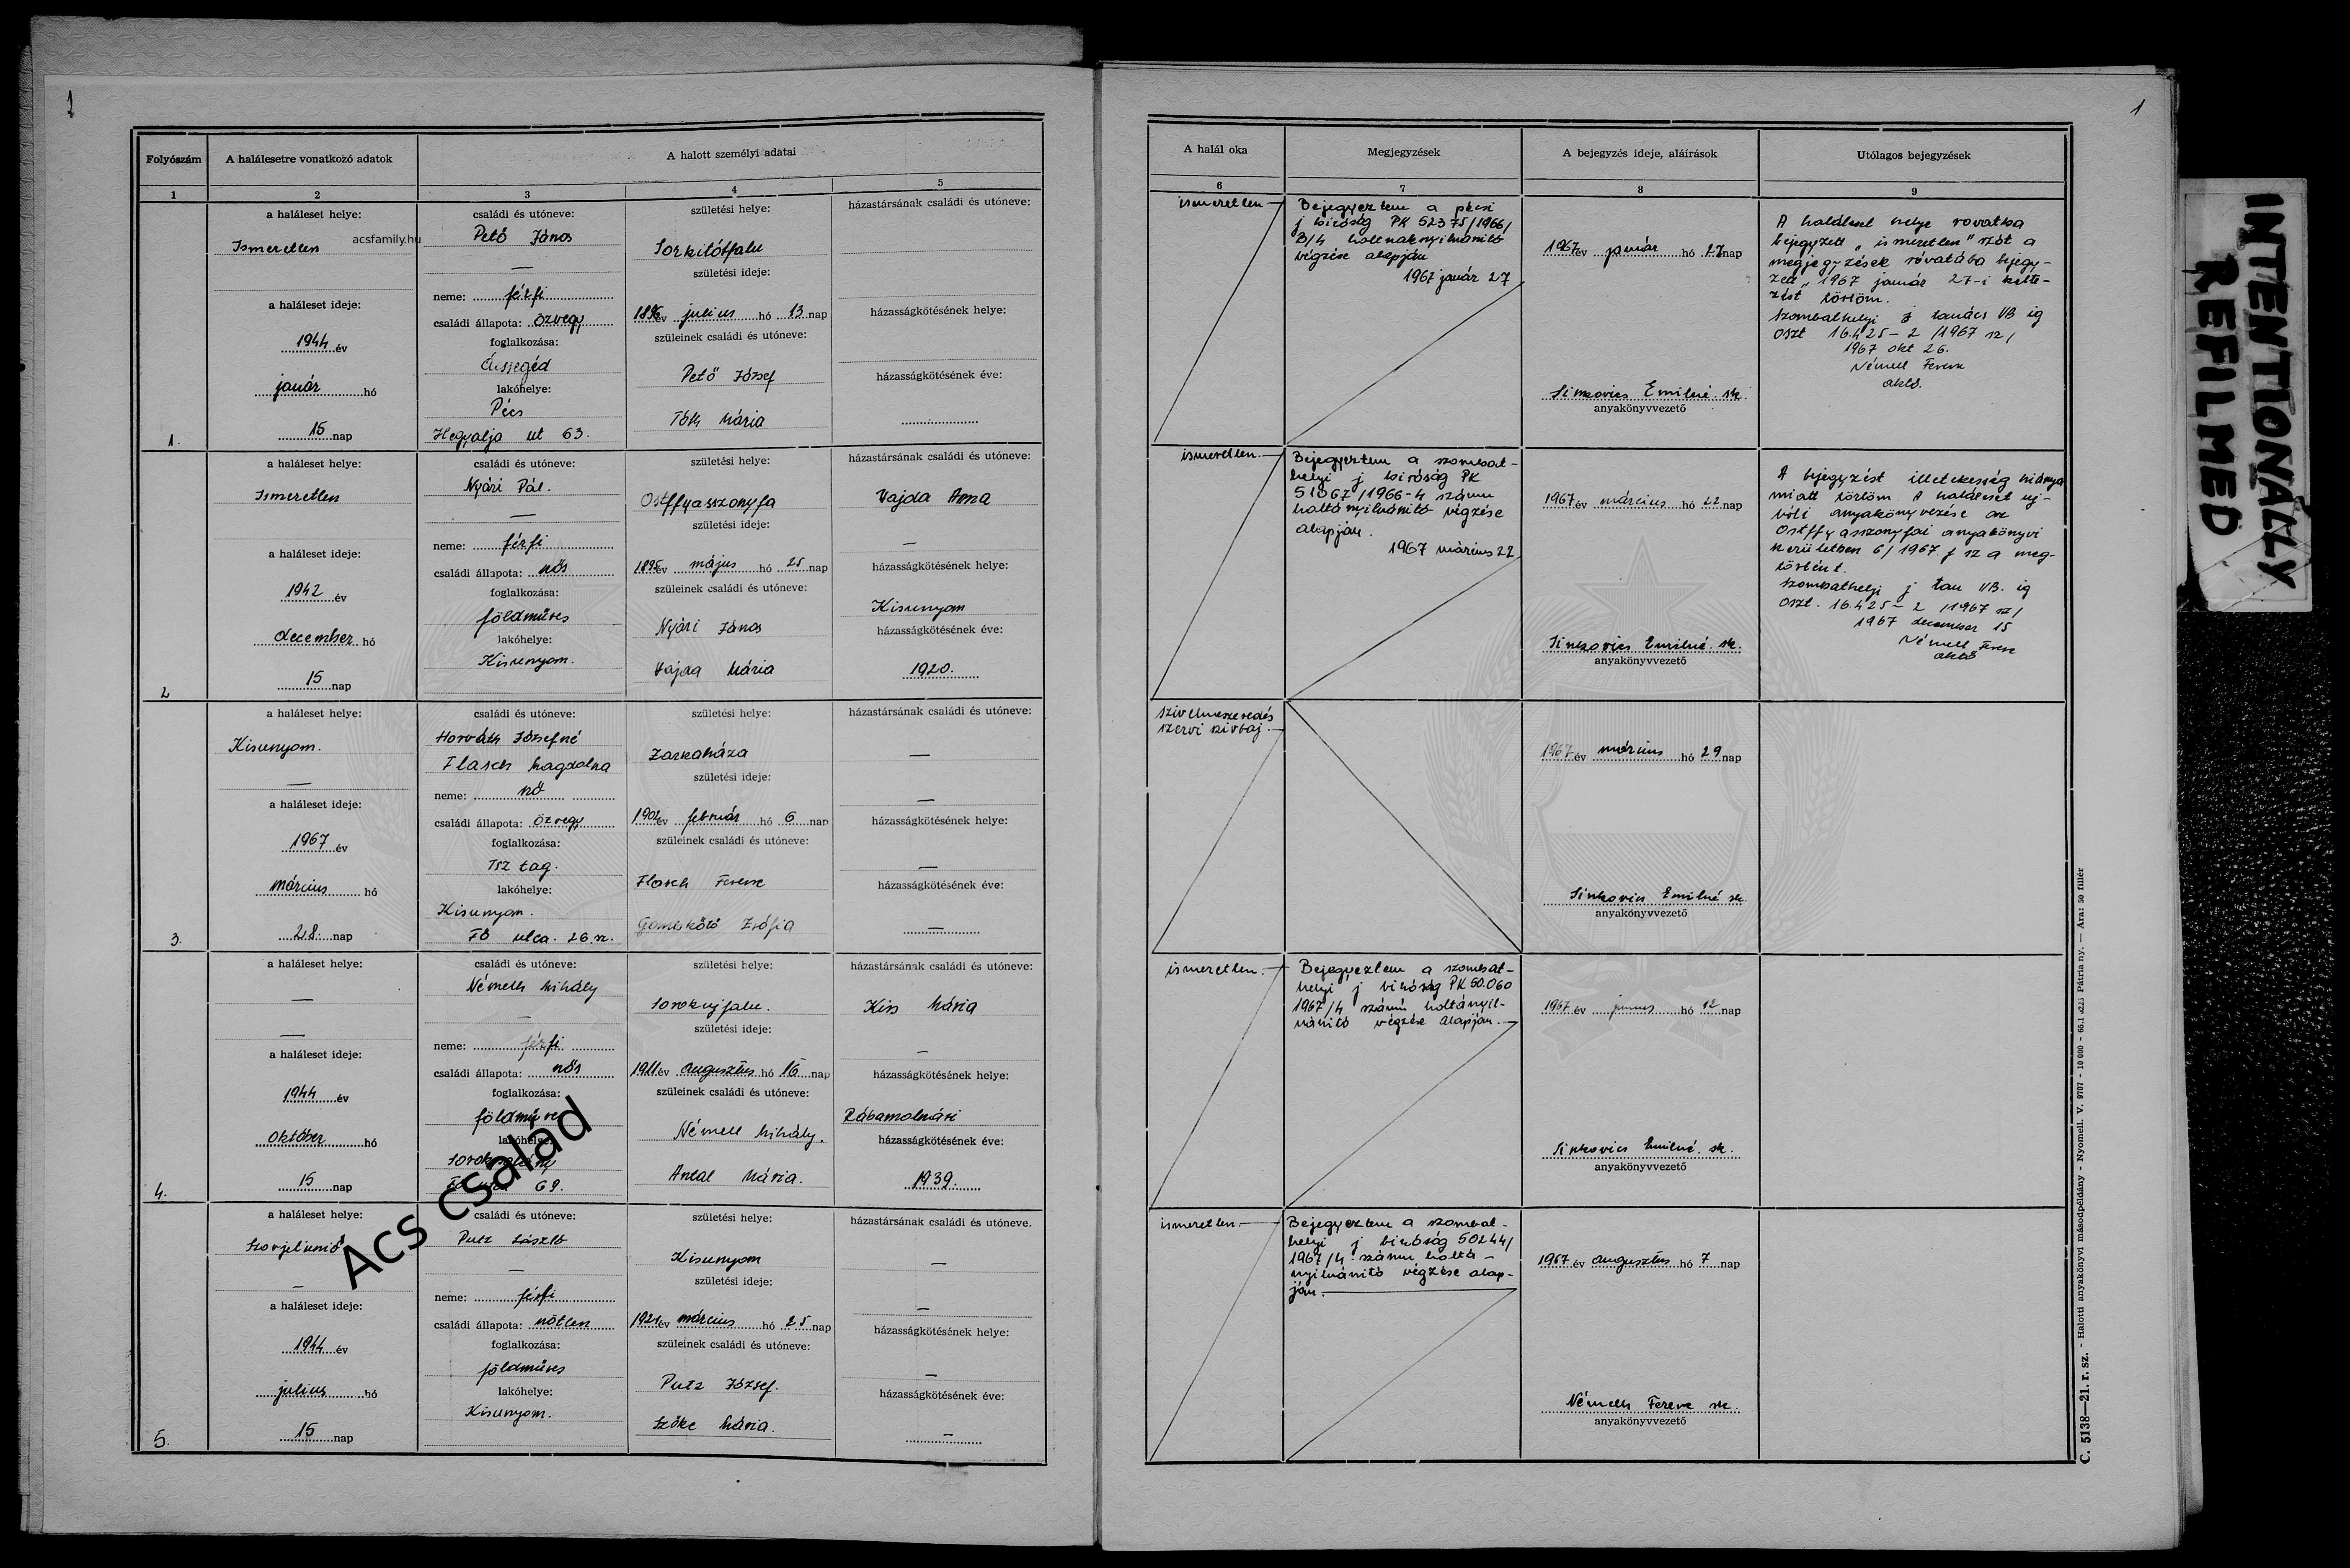 1
1
Folyószám
A halálesetre vonatkozó adatok
A halott személyi adatai
A halál oka
Megjegyzések
A bejegyzés ideje, aláírások
Utólagos bejegyzések
1
2
3
4
5
6
7
8
9
1.
a haláleset helye:
Ismeretlen
acsfamily.hu
a haláleset ideje:
1944 év
január hó
15 nap
családi és utóneve:
Pető János
neme: férfi
családi állapota: özvegy
foglalkozása:
lakóhelye:
Pécs
Hegyalja ut 63.
születési helye:
Sorkitótfalu
születési ideje:
1896 év julius hó 13 nap
szüleinek családi és utóneve:
Pető József
Tóth Mária
házastársának családi és utóneve:
házasságkötésének helye:
házasságkötésének éve:
ismeretlen
Bejegyeztem a pécsi
j biróság PK 52375/1966/
B/4 holtnaknyilvánitó
végzése alapján
1967 január 27
1967 év január hó 27 nap
Sinkovics Emilné sk.
anyakönyvvezető
A haláleset helye rovatba
bejegyzett „ismeretlen" szót a
megjegyzések rovatába bejegy-
zett „1967 január 27-i kelte-
zést törlöm.
Szombathelyi j tanács VB ig
oszt 16.425-2/1967 sz/
1967 okt 26.
Németh Ferenc
2
a haláleset helye:
Ismeretlen
a haláleset ideje:
1942 év
december hó
15 nap
családi és utóneve:
Nyári Pál.
neme: férfi
családi állapota: nős
foglalkozása:
földműves
lakóhelye:
Kisunyom.
születési helye:
Ostffyasszonyfa
születési ideje:
1895 év május hó 25 nap
szüleinek családi és utóneve:
Nyári János
Vajda Mária
házastársának családi és utóneve:
Vajda Anna
házasságkötésének helye:
Kisunyom
házasságkötésének éve:
1920.
ismeretlen.
Bejegyeztem a szombat-
helyi j biróság PK
51067/1966-4 számu
holtá nyilvánitó végzése
alapján.
1967 március 22
1967 év március hó 22 nap
Sinkovics Emilné. sk.
anyakönyvvezető
A bejegyzést illetékesség hiánya
miatt törlöm A haláleset uj-
bóli anyakönyvezése az
Ostffyasszonyfai anyakönyvi
kerületben 6/1967 f sz a meg-
történt.
Szombathelyi j tan VB. ig
oszt. 16.425-2/1967 sz/
1967 december 15
Németh Ferenc
3.
a haláleset helye:
Kisunyom.
a haláleset ideje:
1967 év
március hó
28. nap
családi és utóneve:
Horváth Józsefné
Flasch Magdolna
neme: nő
családi állapota: özvegy
foglalkozása:
Tsz tag.
lakóhelye:
Kisunyom.
Fő utca. 26 sz.
születési helye:
Zarkaháza
születési ideje:
1902 év február hó 6 nap
szüleinek családi és utóneve:
Flasch Ferenc
Zsófia
házastársának családi és utóneve:
házasságkötésének helye:
házasságkötésének éve:
szivelmeszesedés
szervi szivbaj
1967 év március hó 29 nap
Sinkovics Emilné sk.
anyakönyvvezető
4.
a haláleset helye:
a haláleset ideje:
1944 év
október hó
15 nap
családi és utóneve:
Németh Mihály
neme: férfi
családi állapota: nős
foglalkozása:
földműves
lakóhelye:
69.
születési helye:
Sorokujfalu.
születési ideje:
1911 év augusztus hó 16 nap
szüleinek családi és utóneve:
Németh Mihály.
Antal Mária.
házastársának családi és utóneve:
Kiss Mária
házasságkötésének helye:
Rábamolnári
házasságkötésének éve:
1939.
ismeretlen.
Bejegyeztem a szombat-
helyi j biróság PK 50.060
1967/4 számú holtányil-
vánitó végzése alapján.
1967 év junius hó 12 nap
Sinkovics Emilné. sk.
anyakönyvvezető
5.
a haláleset helye:
Szovjetunió
a haláleset ideje:
1944 év
julius hó
15 nap
családi és utóneve:
Putz László
neme: férfi
családi állapota: nőtlen
foglalkozása:
földműves
lakóhelye:
Kisunyom.
születési helye:
Kisunyom
születési ideje:
1921 év március hó 25 nap
szüleinek családi és utóneve:
Putz József.
Szőke Mária.
házastársának családi és utóneve.
házasságkötésének helye:
házasságkötésének éve:
ismeretlen
Bejegyeztem a szombat-
helyi j biróság 50244/
1967/4 számu holtá-
nyilvánitó végzése alap-
ján.
1967 év augusztus hó 7 nap
Németh Ferenc sk.
anyakönyvvezető
Acs család
C. 5138—21. r. sz. - Halotti anyakönyvi másodpéldány - Nyomell. V. 9707 - 10 000 - Pátria ny. — Ára: 50 fillér
INTENTIONALLY
REFILMED